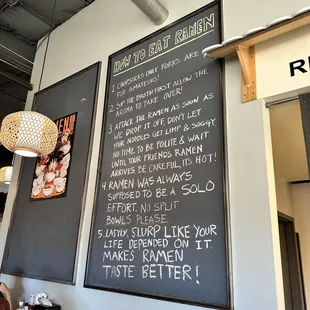 HOW TO EAT RAMEN
1. CHOPSTICKS ONLY FORKS ARE
FOR AMATEURS!
2. SIP THE BROTH FIRST ALLOW THE
AROMA TO TAKE OVER!
3. ATTACK THE RAMEN AS SOON AS
WE DROP IT OFF, DON'T LET
YOUR NOODLES GET LIMP & SOGGY.
NO TIME TO BE POLITE & WAIT
UNTIL YOUR FRIENDS RAMEN
ARRIVES. BE CAREFUL, IT'S HOT!
4. RAMEN WAS ALWAYS
SUPPOSED TO BE A SOLO
EFFORT. NO SPLIT
BOWLS PLEASE.
5. LASTLY, SLURP LIKE YOUR
LIFE DEPENDED ON IT.
MAKES RAMEN
TASTE BETTER!
R